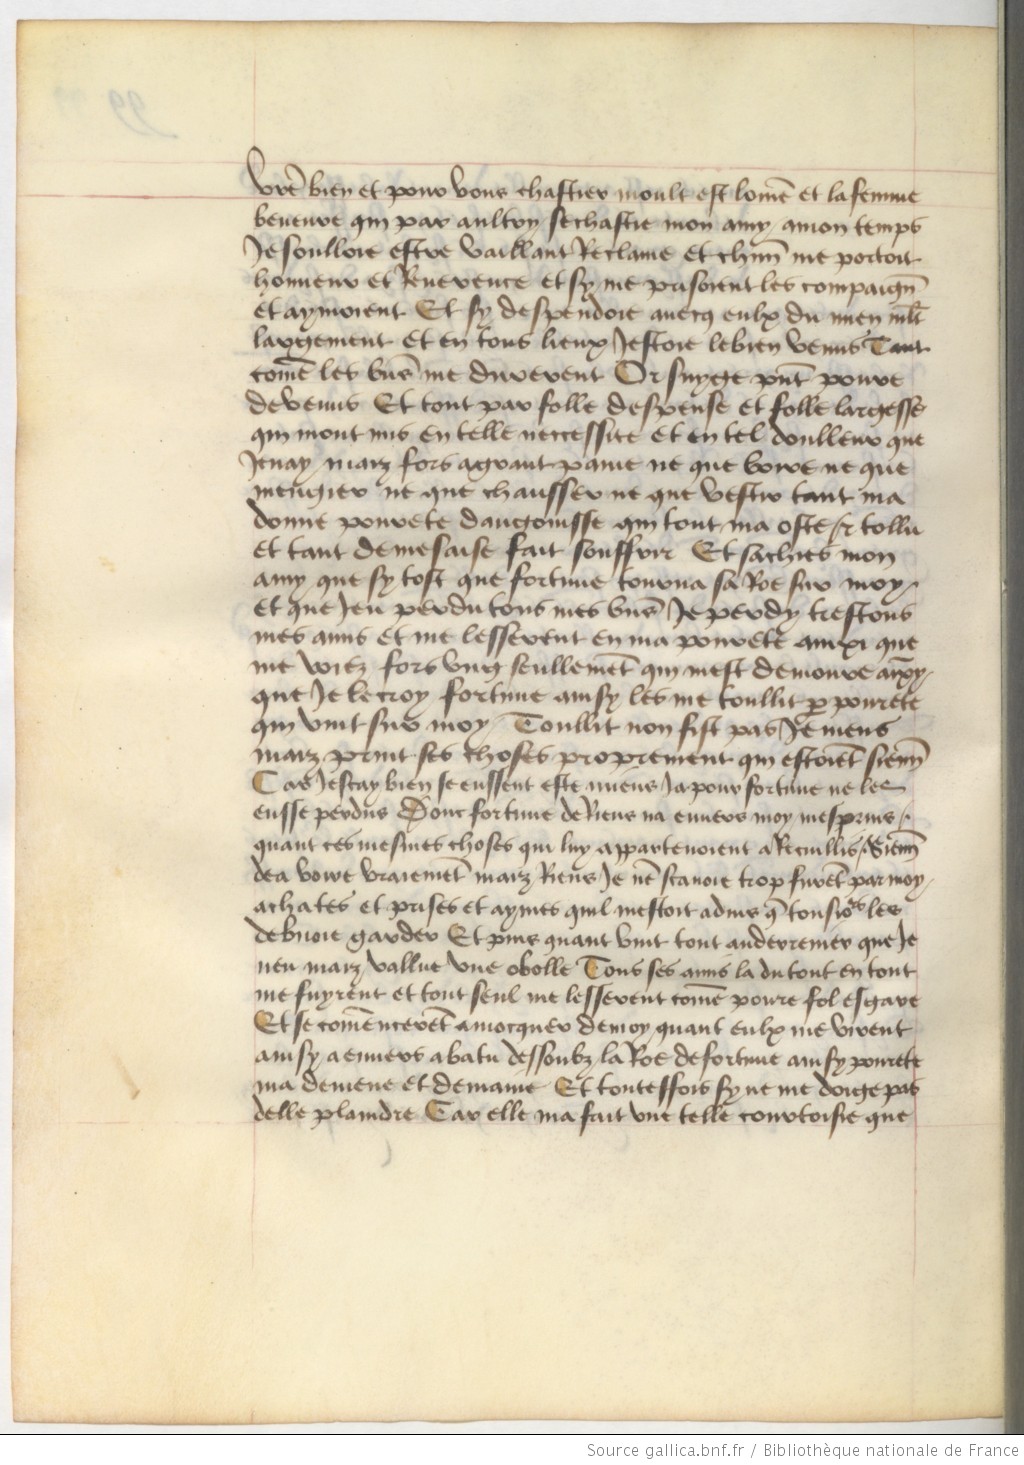 vr̃e bien et pour vous chastier moult est lom̃e et la femme
beneure qui par aultry se chastie mon amy / a mon temps
Je soulloie estre vaillant Reclame et chũn me portoit
honneur et Reverence et sy me prisoient les compaign̄
et aymoient Et sy despendoie avecq eulx du mien mlt̃
largement et en tous lieux Jestoie le bien venus Tant
com̃e les biẽs me durerent Or suyge pñt povre
devenus Et tout par folle despense et folle largesse
qui mont mis en telle neccessite et en tel doulleur que
Jenay / maiz fors agrant paine ne que boire ne que
mengier ne que chausser ne que vestir tant ma
donne povrete dangoisse qui tout ma oste / et tollu
et tant de mesaise fait souffrir Et saches mon
amy que sy tost que fortune tourna sa Roe sur moy /
et que Jeu perdu tous mes biẽs Je perdy trestous
mes amis et me lesserent en ma povrete ainxi que
me viez fors ung seullemēt qui mest demoure ainxy /
que Je le croy fortune ainsy les me toullit p̱ povrete
qui vint sur moy / Toullit non fist pas / Je mens
maiz print ses choses proprement qui estoiēt sienn̄
Car Jescay bien se eussent este miens Ja pour fortune ne les
eusse perdus Donc fortune de Riens na envers moy mesprins /.
quant ces mesmes choses qui luy appartenoient a Recuillis / Sienn̄
dea voire vraiemēt maiz Riens Je nē scavoie trop furēt par moy /
achatés et prises et aymes quil mestoit advis q̄ tousiors les
debuoie garder Et puis quant vint tout anderremier que Je
neu maiz vallue une obolle Tous ses amis la du tout en tout
me fuyrent et tout seul me lesserent com̃e povre fol esgare
Et se com̃encerēt a mocquer de moy quant eulx me virent
ainsy a envers abatu dessoubz la Roe de fortune ainsy povrete
ma demene et demaine Et toutessois sy ne me doige pas
delle plaindre Car elle ma fait une telle courtoisie que
Source gallica.bnf.fr / Bibliothèque nationale de France